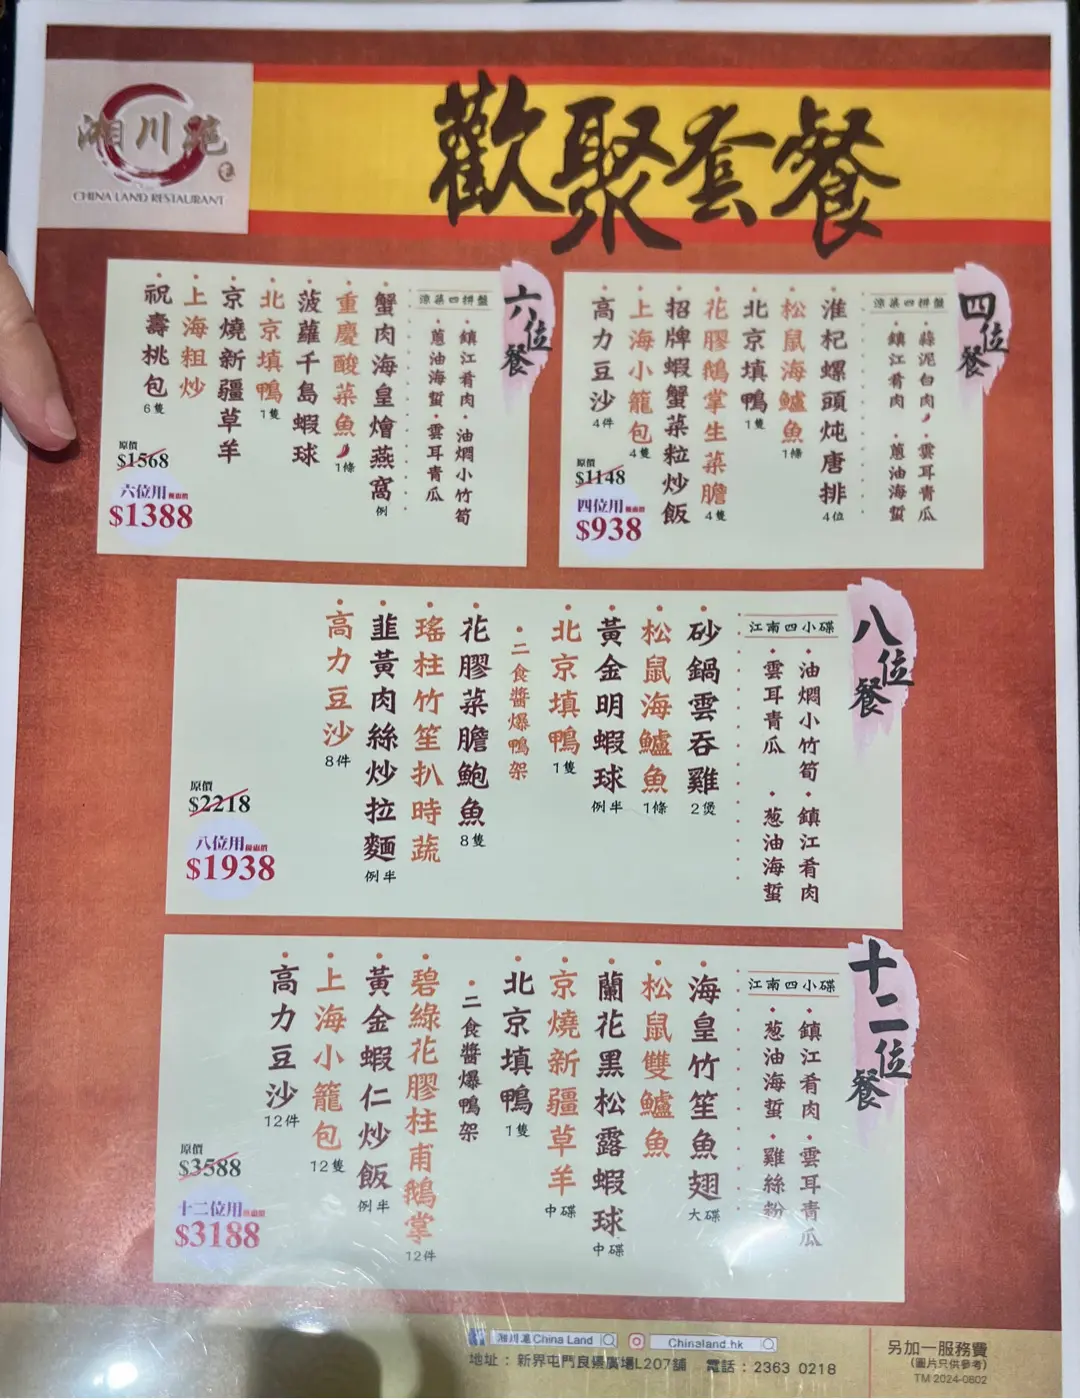 湘川苑
CHINA LAND RESTAURANT
歡聚套餐
四位餐
涼菜四拼盤
蒜泥白肉・雲耳青瓜
鎮江肴肉・蔥油海蜇
淮杞螺頭炖唐排 4位
松鼠海鱸魚 1條
北京填鴨 1隻
花膠鵝掌生菜膽 4隻
招牌蝦蟹菜粒炒飯
上海小籠包 4隻
高力豆沙 4件
原價
$1148
四位用優惠價
$938
六位餐
涼菜四拼盤
鎮江肴肉・油燜小竹筍
蔥油海蜇・雲耳青瓜
蟹肉海皇燴燕窩 例
重慶酸菜魚 1條
菠蘿千島蝦球
北京填鴨 1隻
京燒新疆草羊
上海粗炒
祝壽桃包 6隻
原價
$1568
六位用優惠價
$1388
八位餐
江南四小碟
油燜小竹筍・鎮江肴肉
雲耳青瓜・葱油海蜇
砂鍋雲吞雞 2煲
松鼠海鱸魚 1條
黃金明蝦球 例半
北京填鴨 1隻
二食醬爆鴨架
花膠菜膽鮑魚 8隻
瑤柱竹笙扒時蔬
韮黃肉絲炒拉麵 例半
高力豆沙 8件
原價
$2218
八位用優惠價
$1938
十二位餐
江南四小碟
鎮江肴肉・雲耳青瓜
葱油海蜇・雞絲粉
海皇竹笙魚翅 大碟
松鼠雙鱸魚
蘭花黑松露蝦球 中碟
京燒新疆草羊 中碟
北京填鴨 1隻
二食醬爆鴨架
碧綠花膠柱甫鵝掌 12件
黃金蝦仁炒飯 例半
上海小籠包 12隻
高力豆沙 12件
原價
$3588
十二位用優惠價
$3188
湘川苑 China Land
Chinaland.hk
地址：新界屯門良景廣場L207舖 電話：2363 0218
另加一服務費
(圖片只供參考)
TM 2024-0802